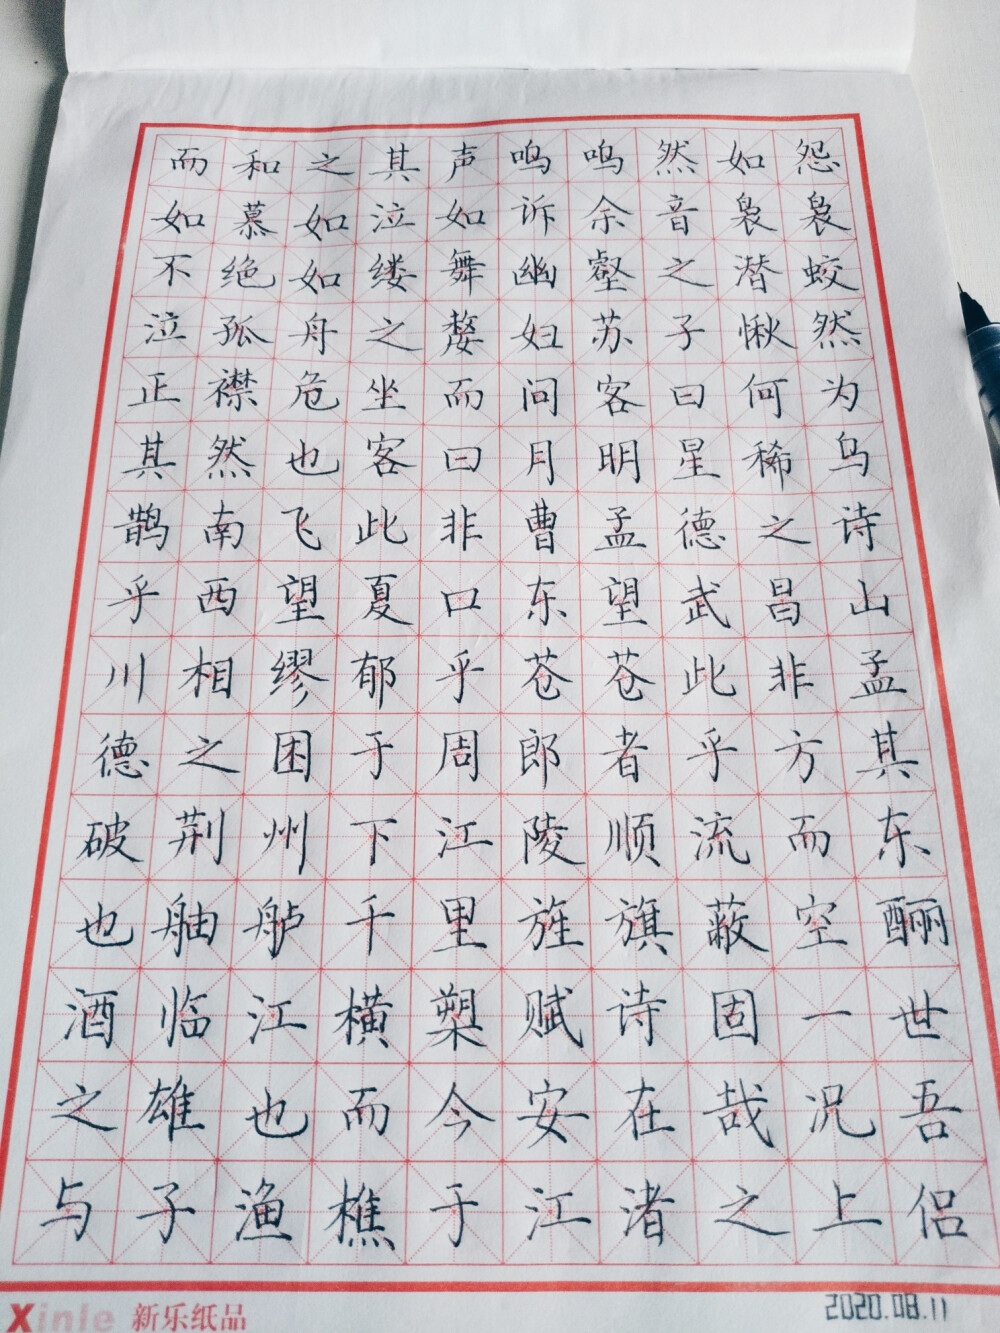 而和之其声呜呜然如怨
如慕如泣如诉余音袅袅
不绝如缕舞幽壑之潜蛟
泣孤舟之嫠妇苏子愀然
正襟危坐而问客曰何为
其然也客曰月明星稀乌
鹊南飞此非曹孟德之诗
乎西望夏口东望武昌山
川相缪郁乎苍苍此非孟
德之困于周郎者乎方其
破荆州下江陵顺流而东
也舳舻千里旌旗蔽空酾
酒临江横槊赋诗固一世
之雄也而今安在哉况吾
与子渔樵于江渚之上侣
Xinle 新乐纸品
2020.08.11